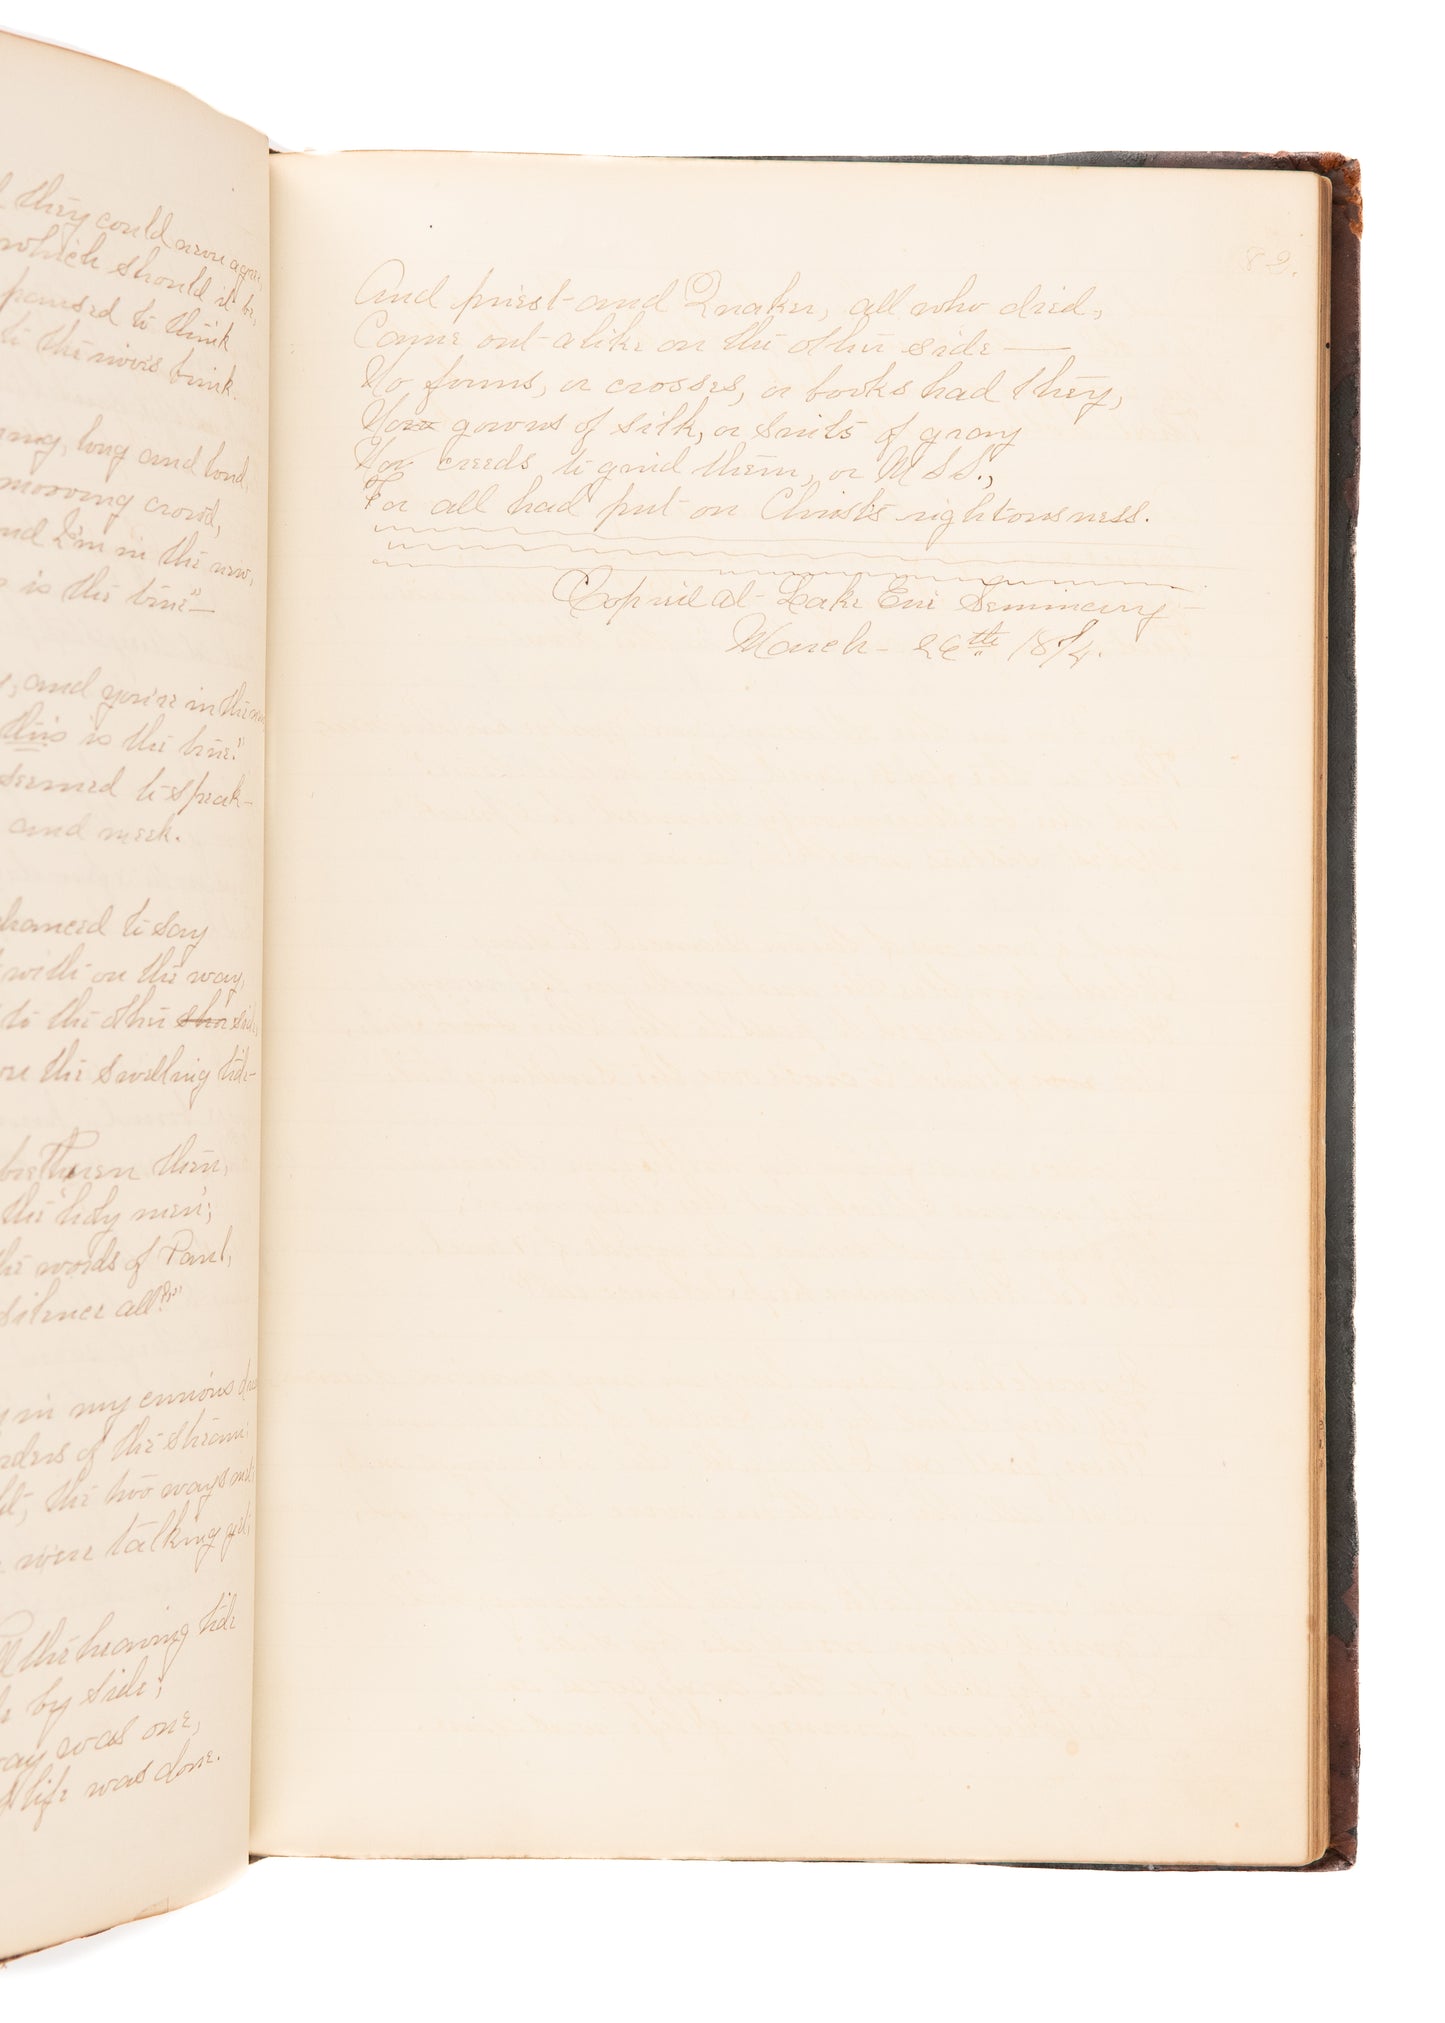 they could never agree,
which should it be,
paused to think
to the river's brink.
long and loud,
moving crowd,
and I'm in the new,
is is the true"—
, and you're in the new
this is the true."
seemed to speak—
and meek.
chanced to say
with on the way,
to the other shor side
the swelling tide—
bethween them,
the 'tidy men';
the words of Paul,
silence all?'"
in my curious dream
borders of the stream;
the two ways met;
were talking yet;
the heaving tide
by side;
way was one,
life was done.
82.
And priest and Quaker, all who died,
Came out alike on the other side—
No forms, or crosses, or books had they,
Nor gowns of silk, or suits of gray
Nor creeds to guid them, or MSS.,
For all had put on Christ's rightousness.
Copied at Lake Erie Seminary—
March— 26th 1874.